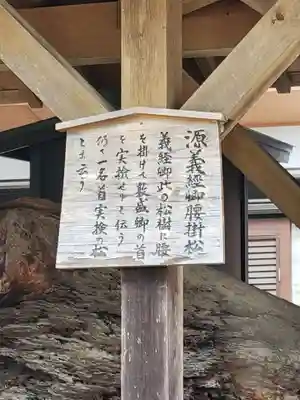 源義經卿腰掛松
義経卿此の松樹に腰
を掛けて義盛卿の首
を実検せりと伝う
仍て一名首実検の松
とも云う